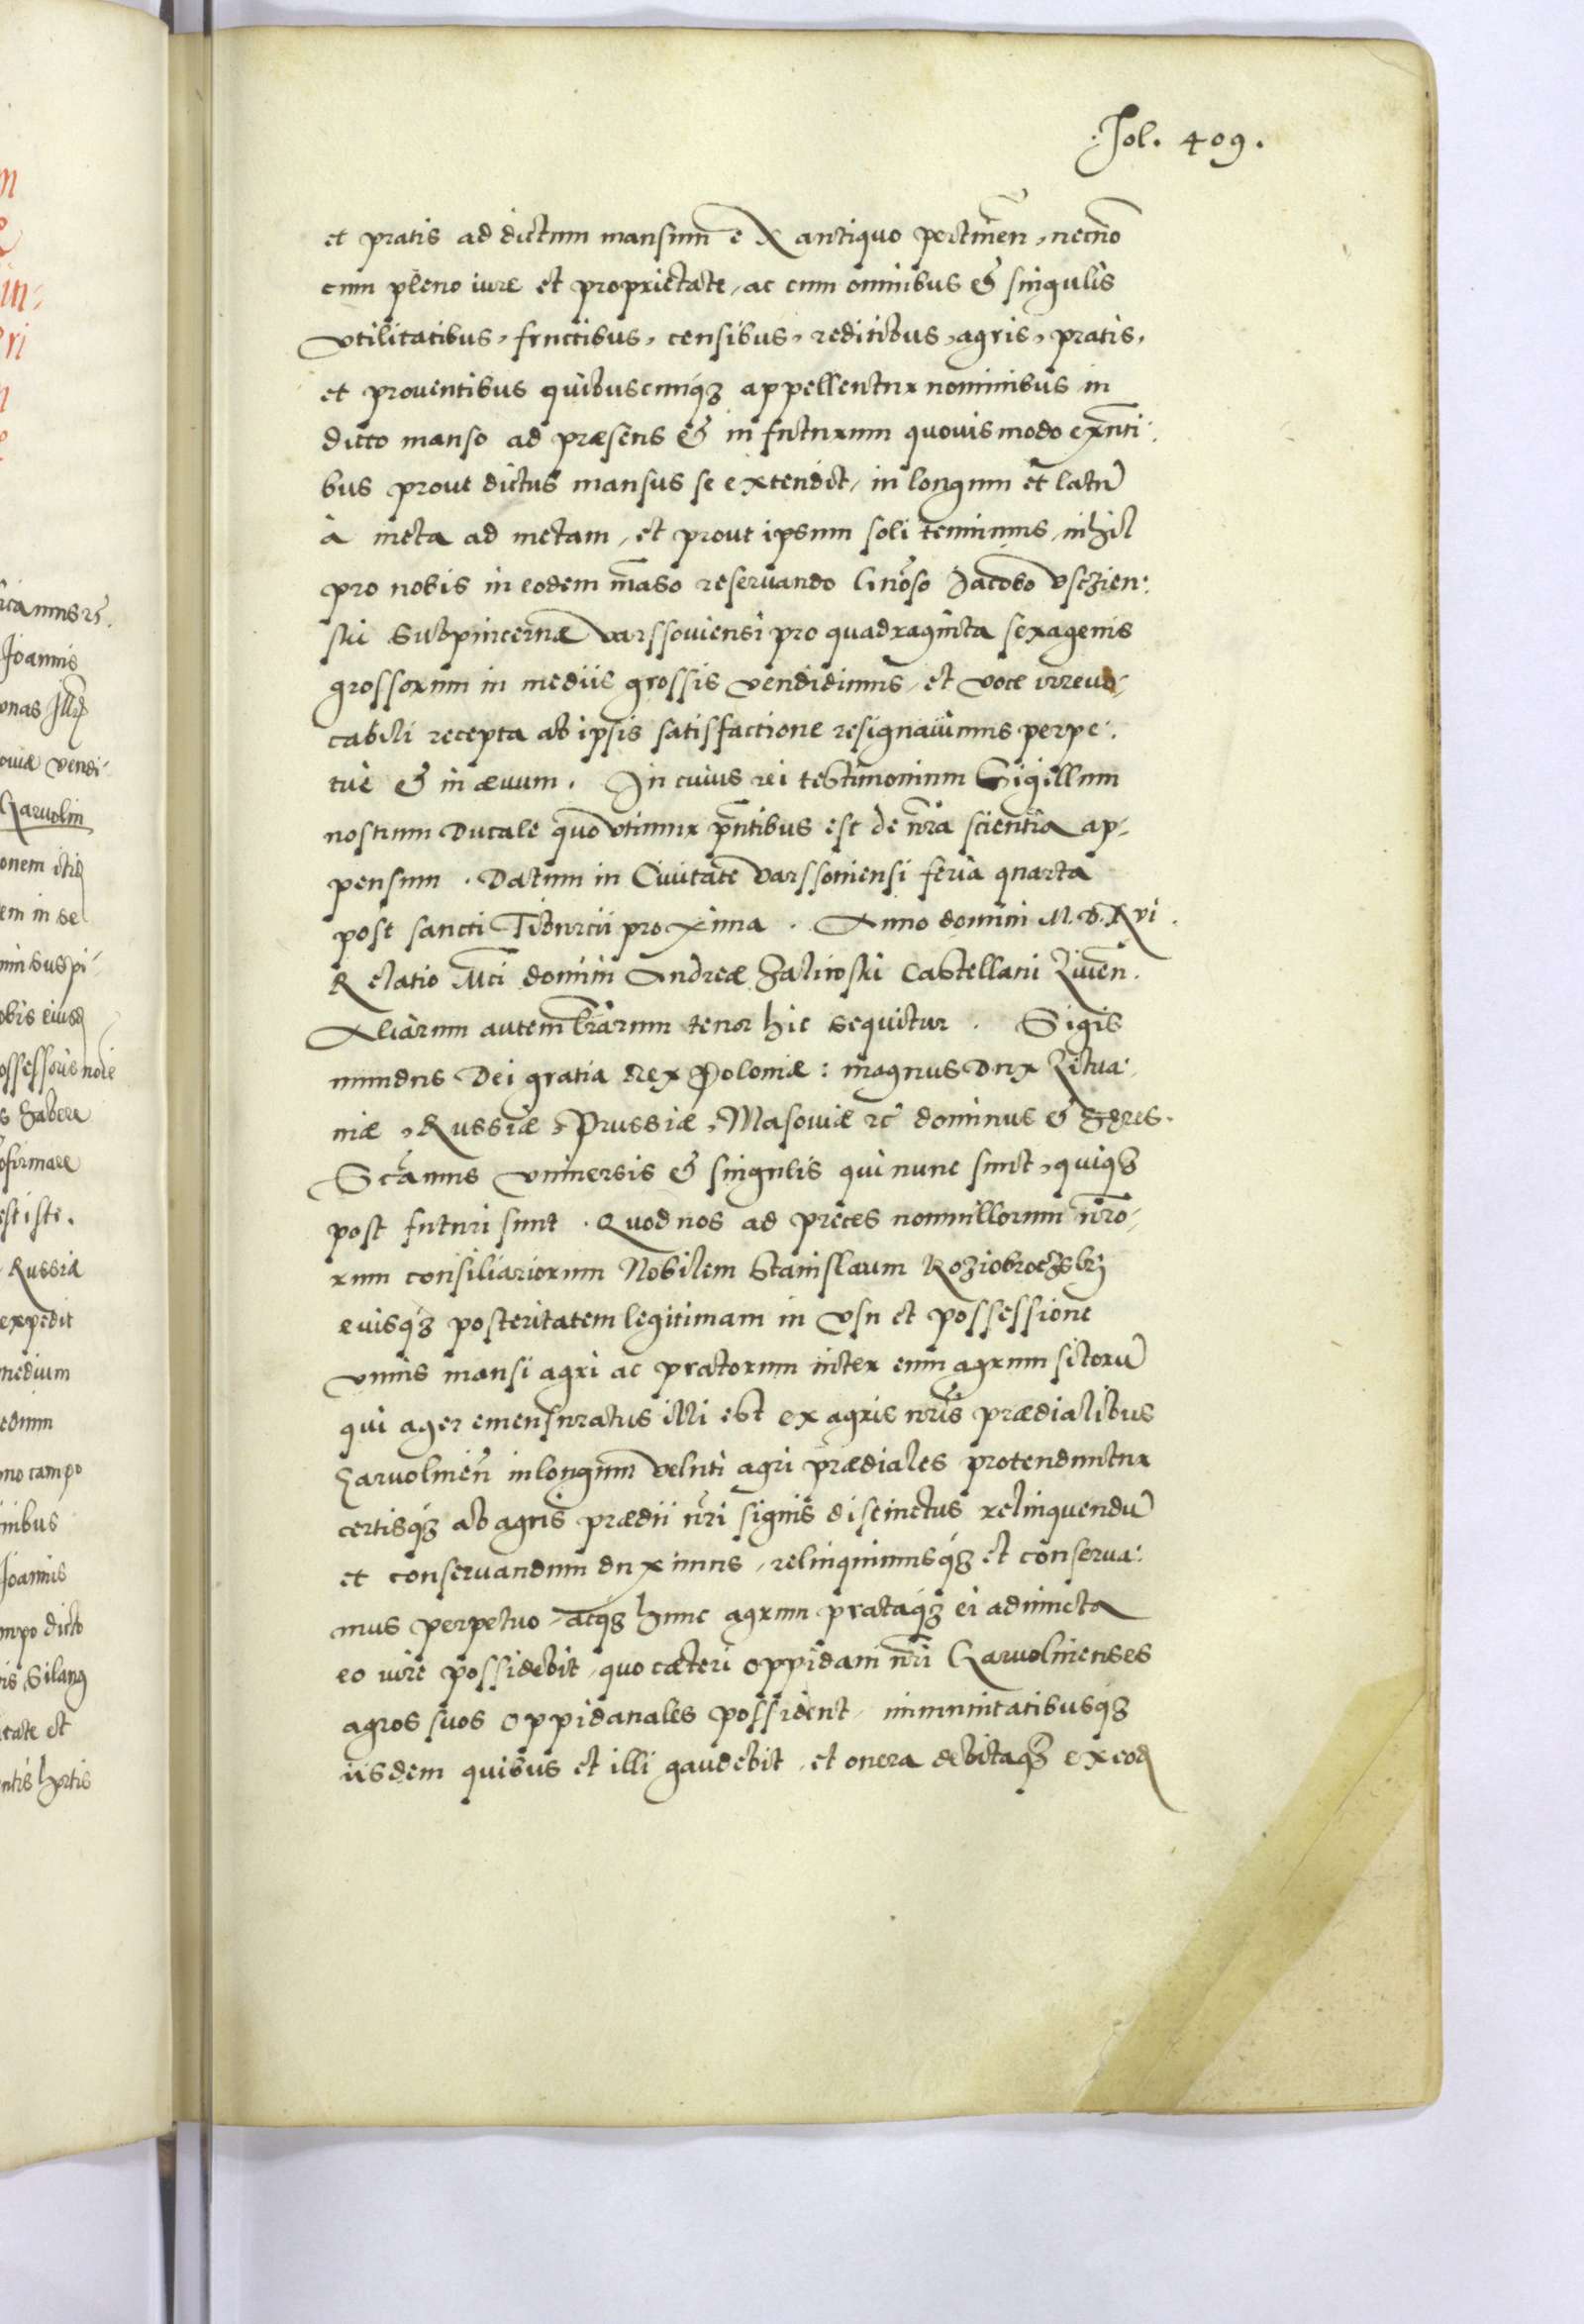 .Fol. 409.
et pratis ad dictum mansum ex antiquo pertinen̄, necnō
cum pleno iure et proprietate, ac cum omnibus & singulis
vtilitatibus, fructibus, censibus, reditibus, agris, pratis,
et prouentibus quibuscunq3 appellentur nominibus in
dicto manso ad præsens & in futurum quouis modo exn̄ti:
bus prout dictus mansus se extendit, in longum et latū
à meta ad metam, et prout ipsum soli tenuimus, nihil
pro nobis in eodem māso reseruando Gnōso Jacobo Vsczien:
ski Subpincernæ Varssouiensi pro quadraginta sexagenis
grossorum in mediis grossis vendidimus, et voce irreuo-
cabili recepta ab ipsis satisfactione resignauimus perpe:
tuè & in æuum. In cuius rei testimonium Sigillum
nostrum Ducale quo vtimur pn̄tibus est de nr̄a scientia ap-
pensum. Datum in Ciuitate Varssouiensi feria quarta
post sancti Tiburcii proxima. Anno domini M.D.Xvi.
Relatio Mci domini Andreæ Zaliwski Castellani Liuen̄.
Aliarum autem lr̄arum tenor hic sequitur. Sigis
mundus Dei gratia Rex Poloniæ: magnus Dux Litua:
niæ, Russiæ, Prussiæ, Masouiæ rc̄ dominus & hæres.
Scāmus vniuersis & singulis qui nunc sunt, quiq3
post futuri sunt. Quod nos ad preces nonnullorum nr̄o-
rum consiliariorum Nobilem Stanislaum
euisq3 posteritatem legitimam in vsu et possessione
vnius mansi agri ac pratorum inter eum agrum sitorū
qui ager emensuratus illi est ex agris nr̄is prædialibus
Garuolinen̄ in longum veluti agri prædiales protenduntur
certisq3 ab agris prædii nr̄i signis discinctus relinquendū
et conseruandum duximus, relinquimusq3 et conserua:
mus perpetuo, atq3 hunc agrum prataq3 ei adiuncta
eo iure possidebit, quo cæteri oppidani nr̄i Garuolinenses
agros suos oppidanales possident, immunitatibusq3
iisdem quibus et illi gaudebit, et onera debitaq3 ex eod